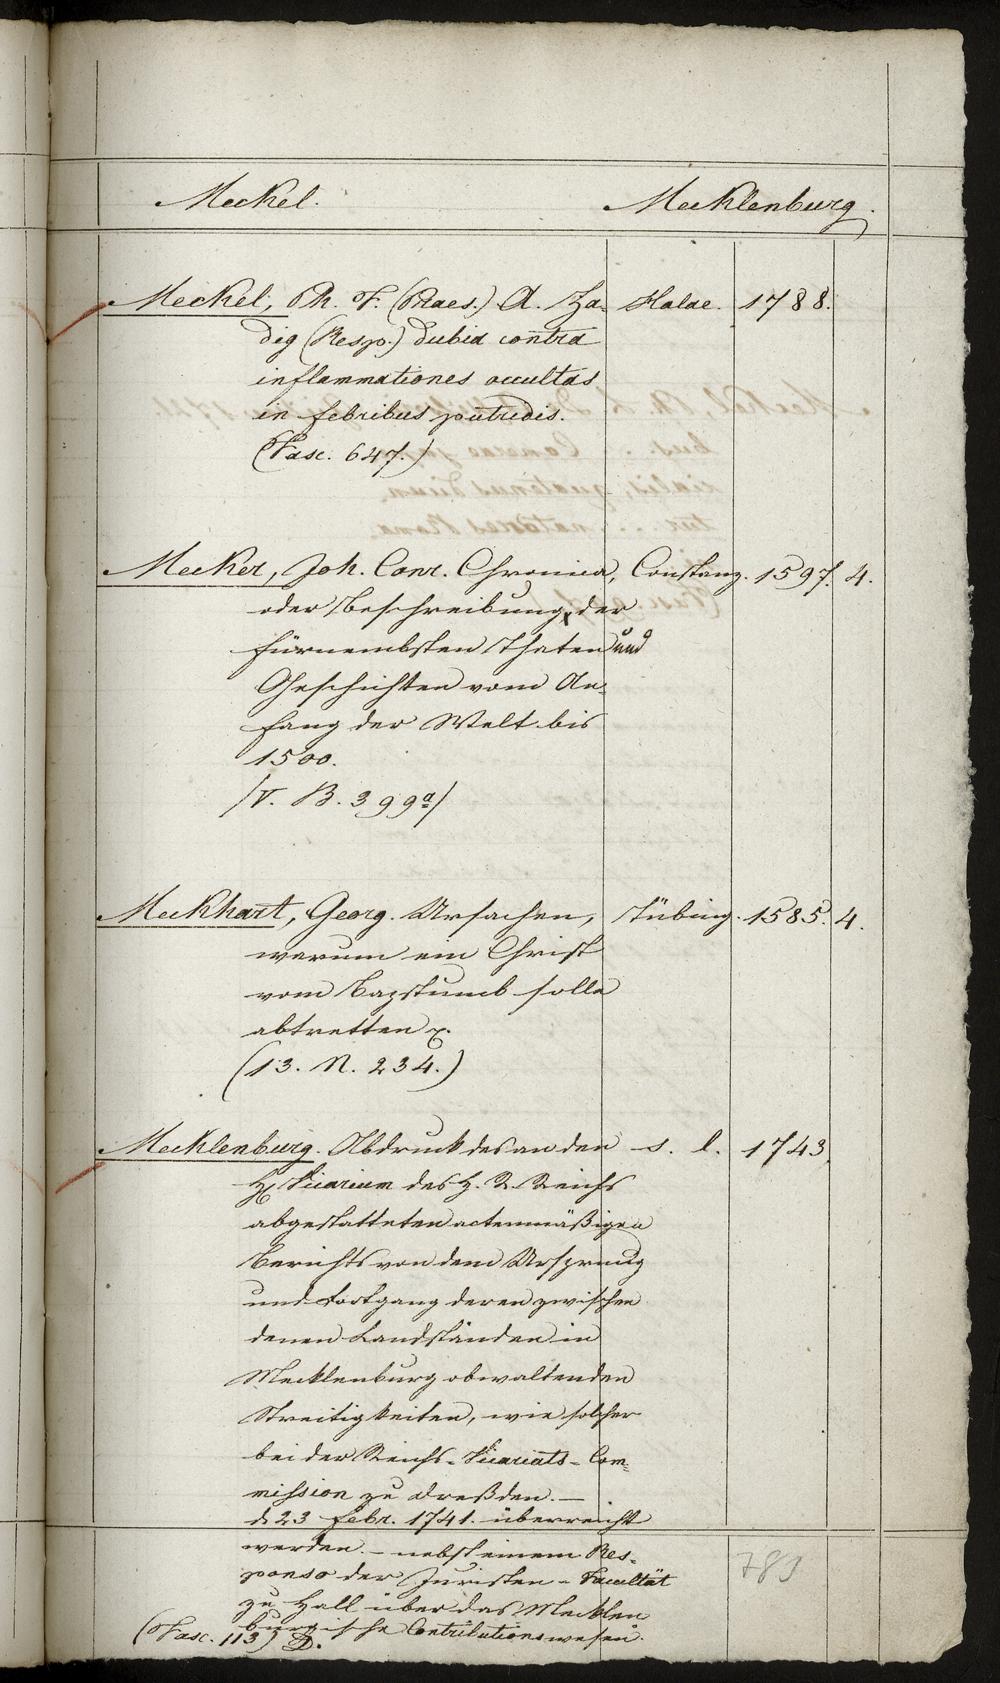 Meckel.
Mecklenburg.
Meckel, Ph. F. (Praes.) A. Za- Halae. 1788.
dig (Resp.) dubia contra
inflammationes occultas
in febribus putredis.
(Fasc. 647.)
Mecker, Joh. Conr. Chronica, Constanz. 1597. 4.
oder Beschreibung der
fürnembsten Thaten und
Geschichten vom An-
fang der Welt bis
1500.
/V. B. 399a/
Meckhart, Georg. Ursachen, Tübing. 1585. 4.
warum ein Christ
vom Bapstumb solle
abtretten
(13. N. 234.)
Mecklenburg. Abdruck des an den s. l. 1743.
Vicarium des H. R. Reichs
abgestatteten actenmäßigen
Berichts von dem Ursprung
und Fortgang deren zwischen
denen Landständen in
Mecklenburg obwaltenden
Streitigkeiten, wie solcher
bei der Reichs-Vicariats-Com-
mission zu Dreßden. —
d. 23 Febr. 1741. überreicht
werden. — nebst einem Res-
ponso der Juristen-Facultät
zu Hall über das Mecklen
burgische Contributionswesen.
(Fasc. 113) D.
783